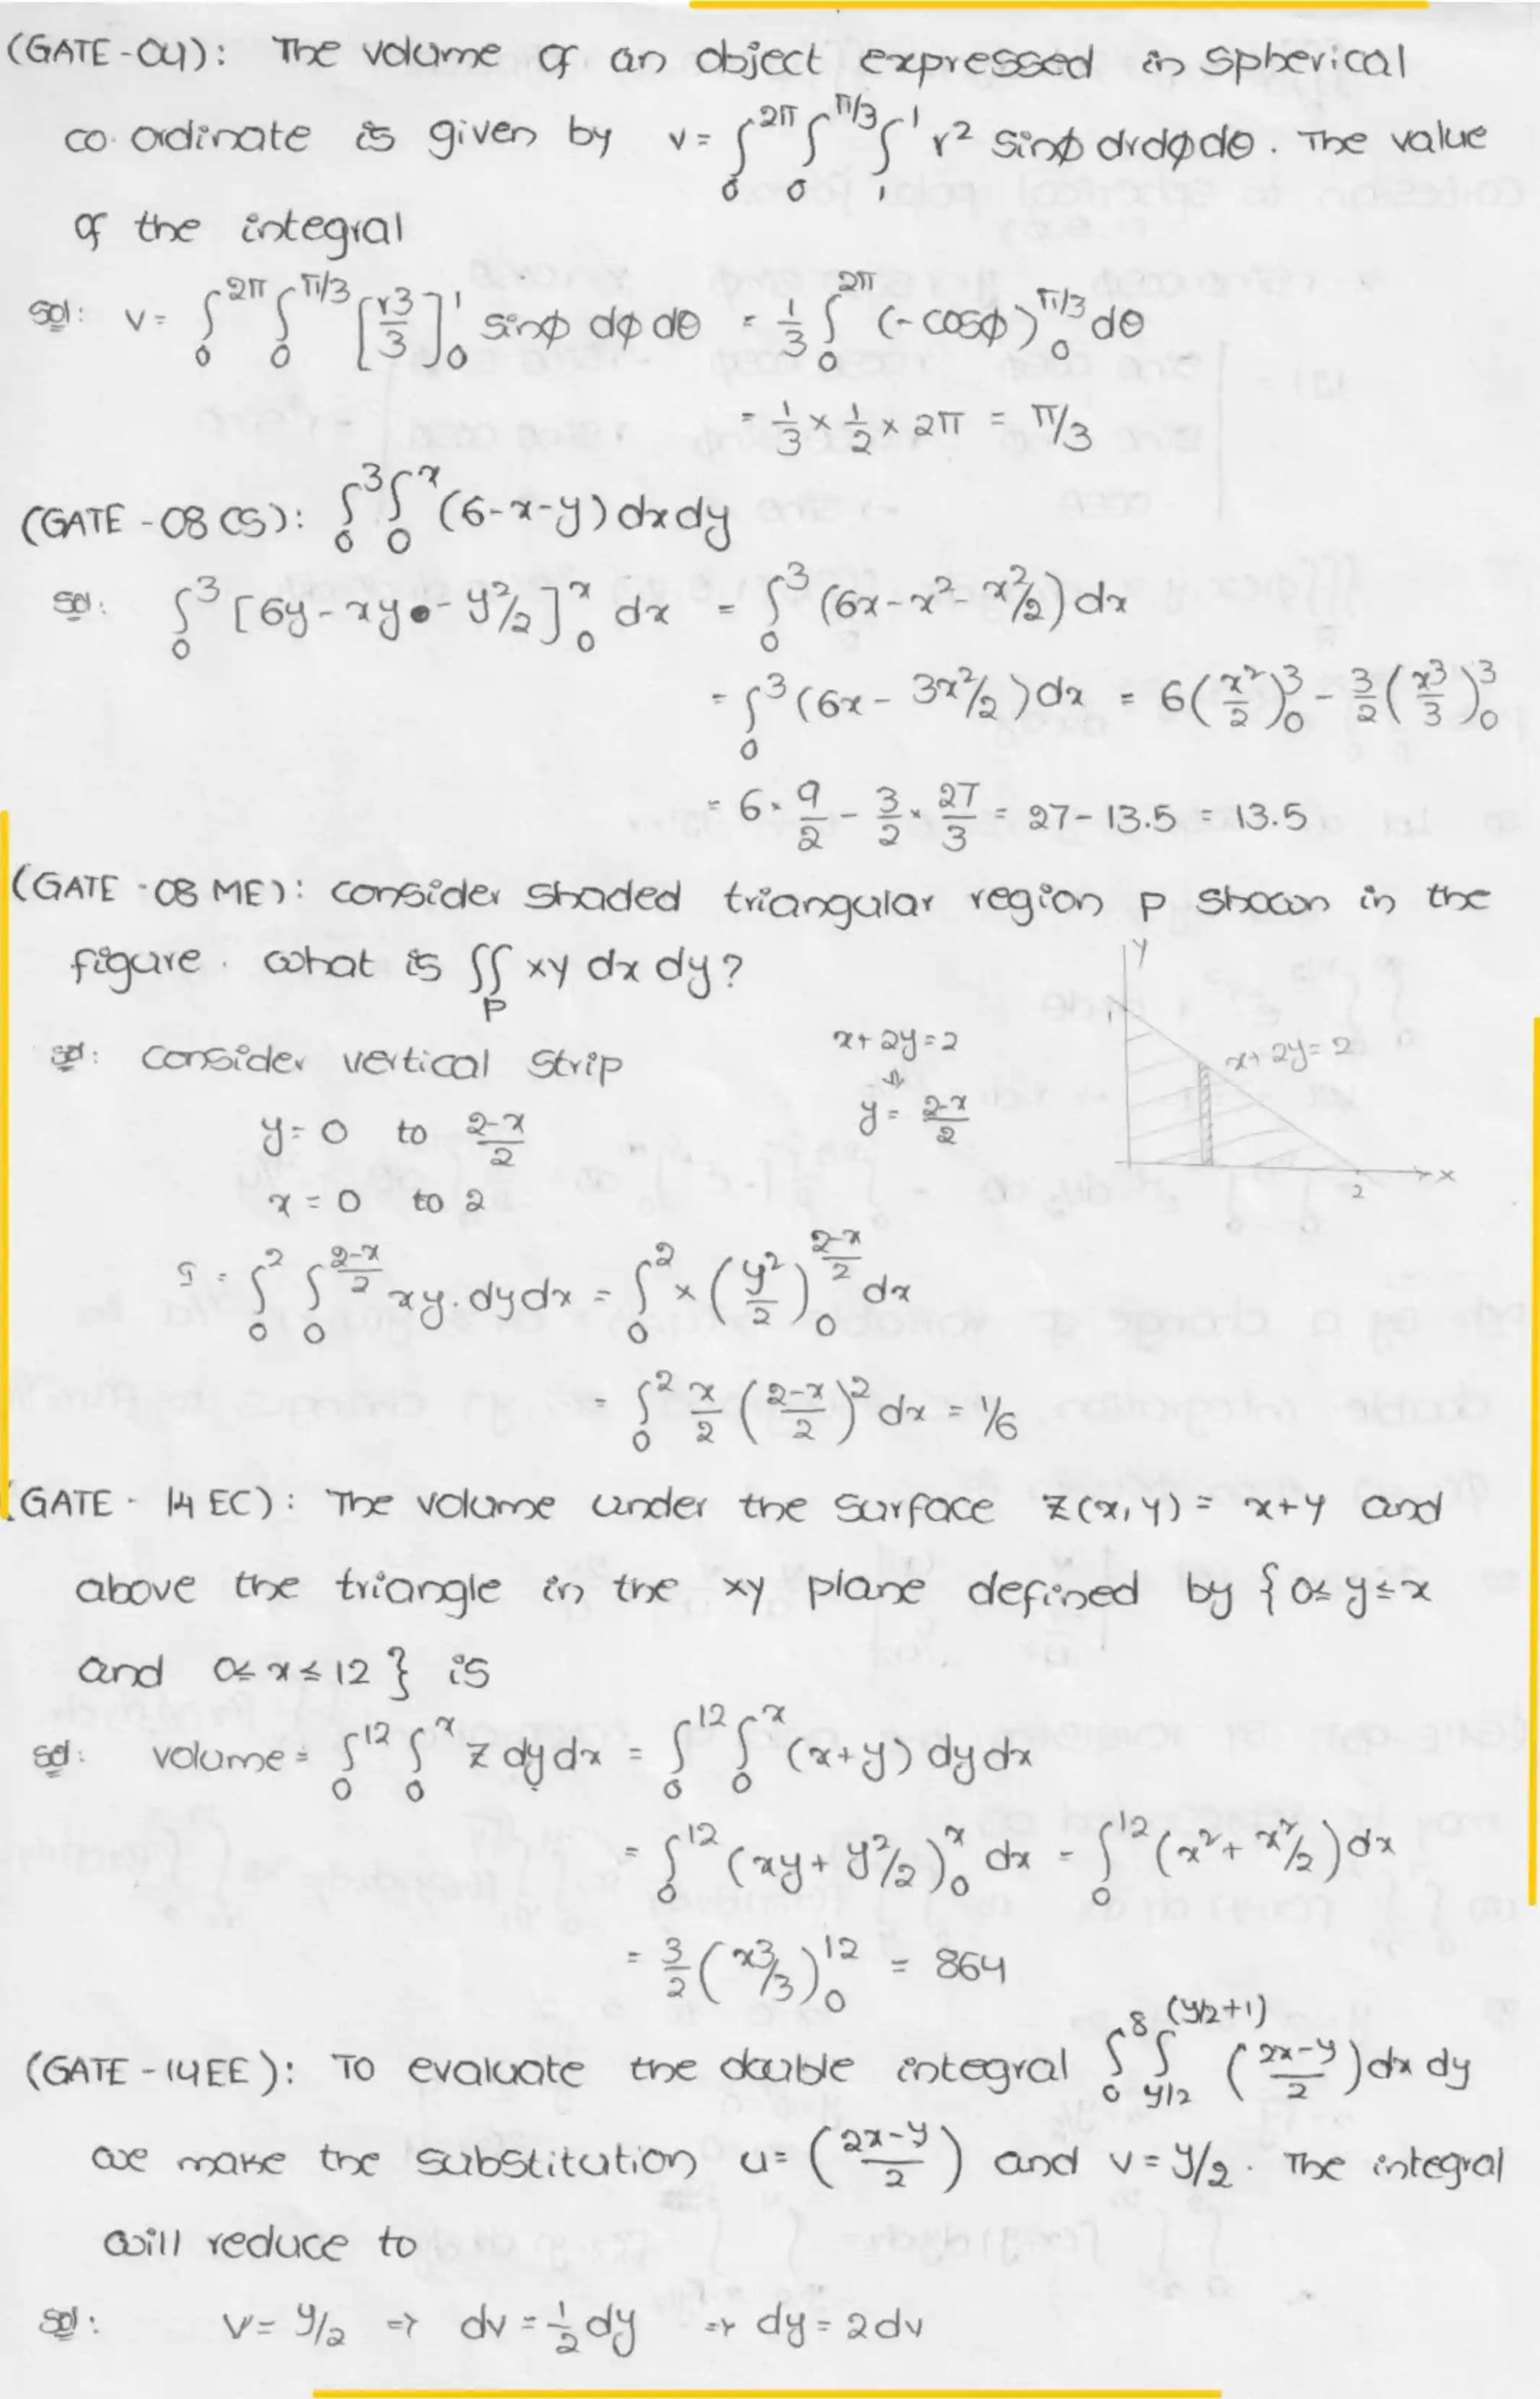 (GATE-04): The volume of an object expressed in spherical
co-ordinate is given by v = ∫₀^2π ∫₀^π/3 ∫₁^1 r² sinϕ dr dϕ dθ. The value
of the integral
sol: v = ∫₀^2π ∫₀^π/3 [r³/3]₀^1 sinϕ dϕ dθ = 1/3 ∫₀^2π (-cosϕ)₀^π/3 dθ
= 1/3 × 1/2 × 2π = π/3
(GATE-08 CS): ∫₀^3 ∫₀^x (6-x-y) dx dy
sol: ∫₀^3 [6y - xy - y²/2]₀^x dx = ∫₀^3 (6x - x² - x²/2) dx
= ∫₀^3 (6x - 3x²/2) dx = 6(x²/2)₀^3 - 3/2 (x³/3)₀^3
= 6 × 9/2 - 3/2 × 27/3 = 27 - 13.5 = 13.5
(GATE-08 ME): consider shaded triangular region P shown in the
figure. what is ∬_P xy dx dy?
Y
1
x+2y=2
2
x
sol: consider vertical strip
x+2y=2
⇓
y = 0 to (2-x)/2
y = (2-x)/2
x = 0 to 2
I = ∫₀^2 ∫₀^(2-x)/2 xy. dy dx = ∫₀^2 x (y²/2)₀^(2-x)/2 dx
= ∫₀^2 x/2 ((2-x)/2)² dx = 1/6
(GATE-14 EC): The volume under the surface z(x,y) = x+y and
above the triangle in the xy plane defined by {0≤y≤x
and 0≤x≤12} is
sol: volume = ∫₀^12 ∫₀^x z dy dx = ∫₀^12 ∫₀^x (x+y) dy dx
= ∫₀^12 (xy + y²/2)₀^x dx = ∫₀^12 (x² + x²/2) dx
= 3/2 (x³/3)₀^12 = 864
(GATE-14EE): To evaluate the double integral ∫₀^8 ∫_y/2^(y/2+1) ((2x-y)/2) dx dy
we make the substitution u = ((2x-y)/2) and v = y/2. The integral
will reduce to
sol: v = y/2 ⇒ dv = 1/2 dy ⇒ dy = 2dv